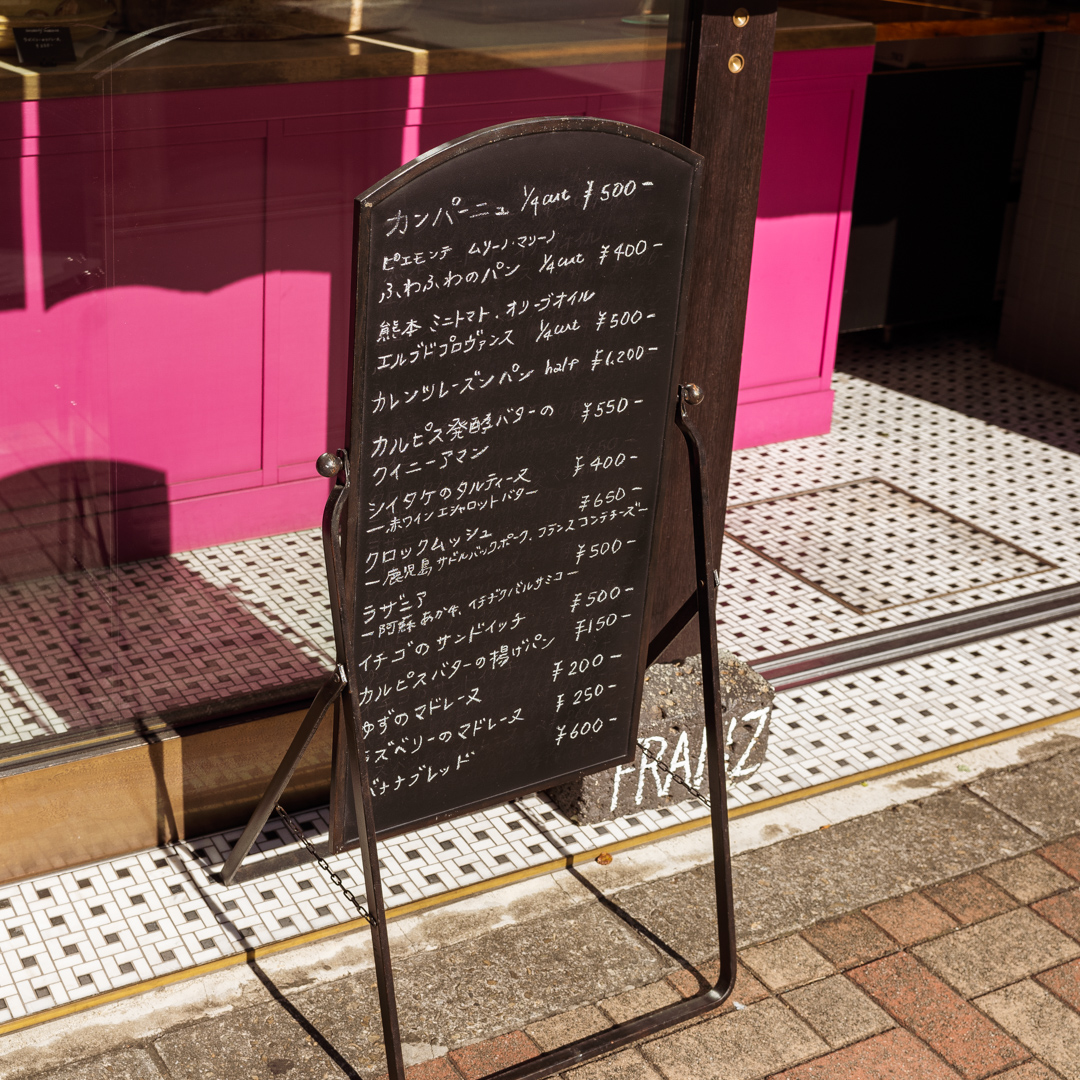 カンパーニュ 1/4cut ¥500-
ピエモンテ ムリーノ・マリーノ
ふわふわのパン 1/4cut ¥400-
熊本 ミニトマト、オリーブオイル
エルブドプロヴァンス 1/4cut ¥500-
カレンツレーズンパン half ¥1,200-
カルピス発酵バターの ¥550-
クイニーアマン
シイタケのタルティーヌ ¥400-
ー赤ワインエシャロットバター
クロックムッシュ ¥650-
ー鹿児島サドルバックポーク、フランスコンテチーズー
ラザニア ¥500-
ー阿蘇あか牛、イチヂクバルサミコー
イチゴのサンドイッチ ¥500-
カルピスバターの揚げパン ¥150-
ゆずのマドレーヌ ¥200-
ラズベリーのマドレーヌ ¥250-
バナナブレッド ¥600-
FRANZ